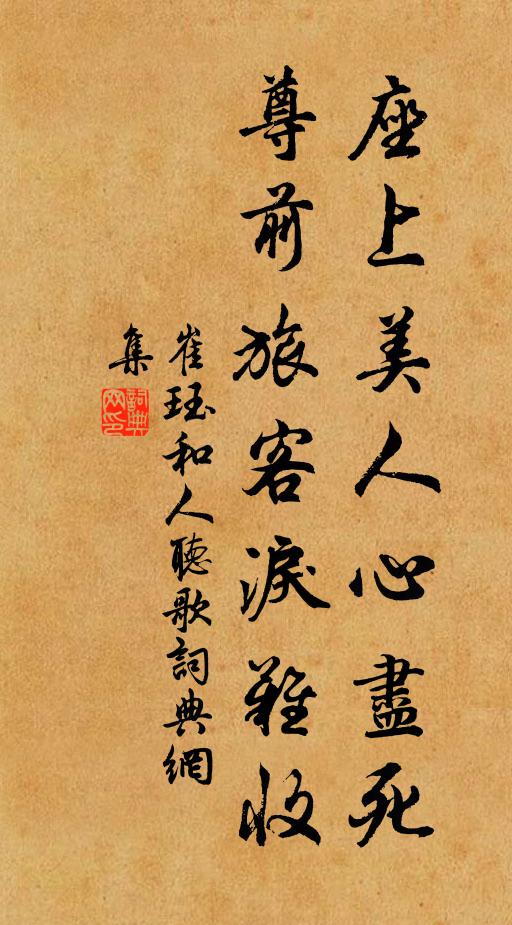 座上美人心盡死
尊前旅客淚難收
崔珏和人聽歌詞典網
集
詞典
网印